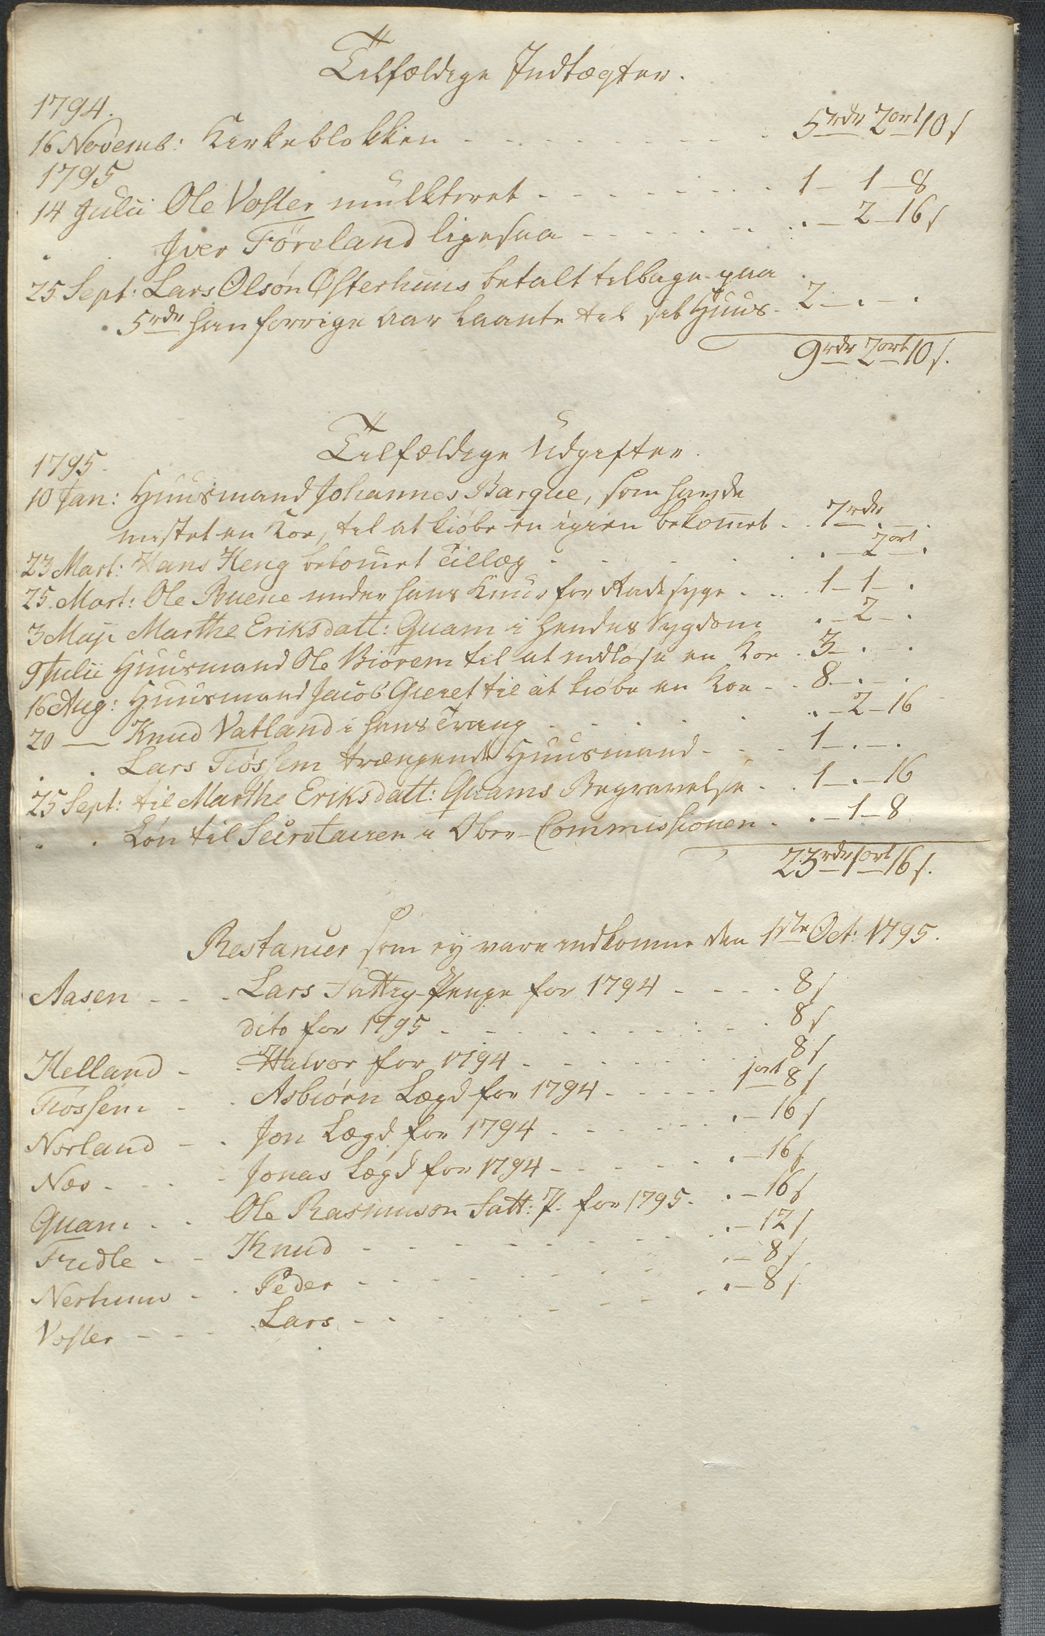 Tilfældige Indtægter.
1794.
16 Novemb: Kirkeblokken - - - 5 rdr 2 ort 10 s
1795
14 Julii Ole Vosler mulkteret - - - 1 - 1 - 8
Iver Føreland ligesaa - - - . - 2 - 16 s
25 Sept: Lars Olsøn Østerhuus betalt tilbage paa
5 rdr han forrige Aar laante til sit Huus - 2 - . - .
9 rdr 2 ort 10 s.
Tilfældige Udgifter.
1795.
10 Jan: Huusmand Johannes Barque, som havde
mistet en Koe, til at kiøbe en igien bekomet - 7 rdr . - .
23 Mart: Hans Heng bekomet Tillæg - - - . - 2 ort .
25. Mart: Ole Buene under hans Cuur for Radesyge - 1 - 1 - .
3 Maji Marthe Eriksdatt: Quam i hendes Sygdom . - 2 - .
9 Julii Huusmand Ole Biørem til at indløse en Koe - 3 - . - .
16 Aug: Huusmand Jacob Qieret til at kiøbe en Koe - 8 - . - .
20 — Knud Vatland i hans Trang - - - . - 2 - 16
Lars Tiøssem trængende Huusmand - - 1 - . - .
25 Sept: til Marthe Eriksdatt: Quams Begravelse - 1 - . - 16
Løn til Secretairen i Over-Commissionen - . - 1 - 8
23 rdr 1 ort 16 s.
Restancer som ey vare indkomne den 1ste Oct: 1795.
Aasen - - - Lars Fattig-Penge for 1794 - - - 8 s
dito for 1795 - - - 8 s
Helland - Halvor for 1794 - - - 8 s
Tiøssem - - Asbiørn Lægd for 1794 - - - 1 ort 8 s
Norland - - Jon Lægd for 1794 - - - . - 16 s
Næs - - - Jonas Lægd for 1794 - - - . - 16 s
Quam - - Ole Rasmuson Fatt: P. for 1795 - . - 16 s
Fridle - - Knud - - - . - 12 s
Nerhuus - - Peder - - - . - 8 s
Vosler - - - Lars - - - . - 8 s